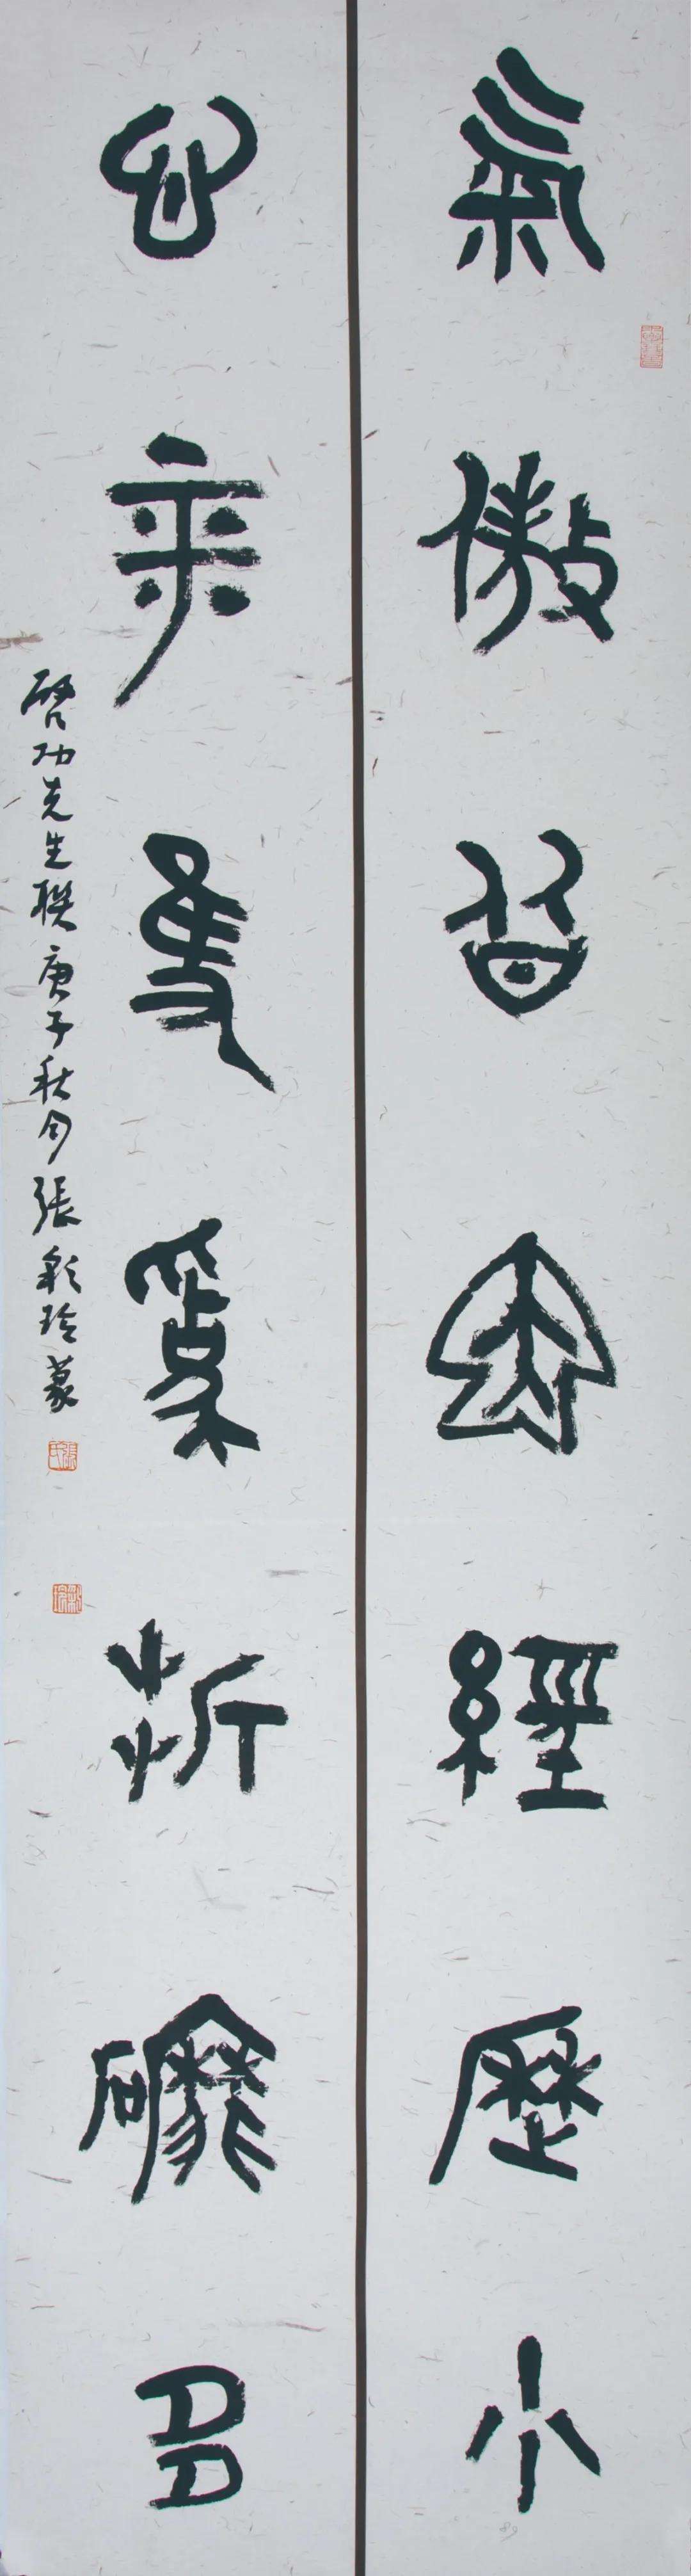 氣傲皆因經歷少
心平隻為折磨多
啓功先生聯庚子秋月張彩玲篆